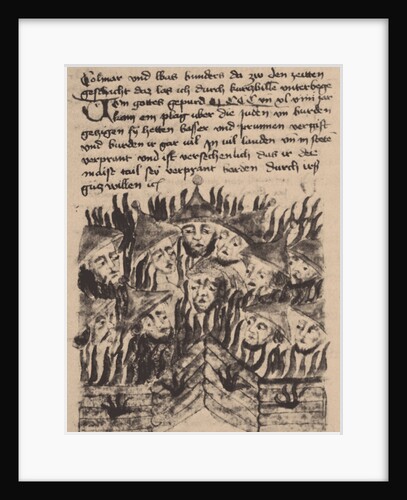 Colmar vnd was bunders da zw den zeitten
geschicht daz las ich durch kurczbille vnterbege
Von gottes gepurd MCCC vn xlviiii jar
kam ein plag vber die juden vn burden
gezigen sy hetten basser vnd prunnen vergift
vnd burden ir gar vil in vil landen vn in stete
verprant vnd ist versechenlich das ir der
maist tail sey verprant borden durch irs
gutz willen